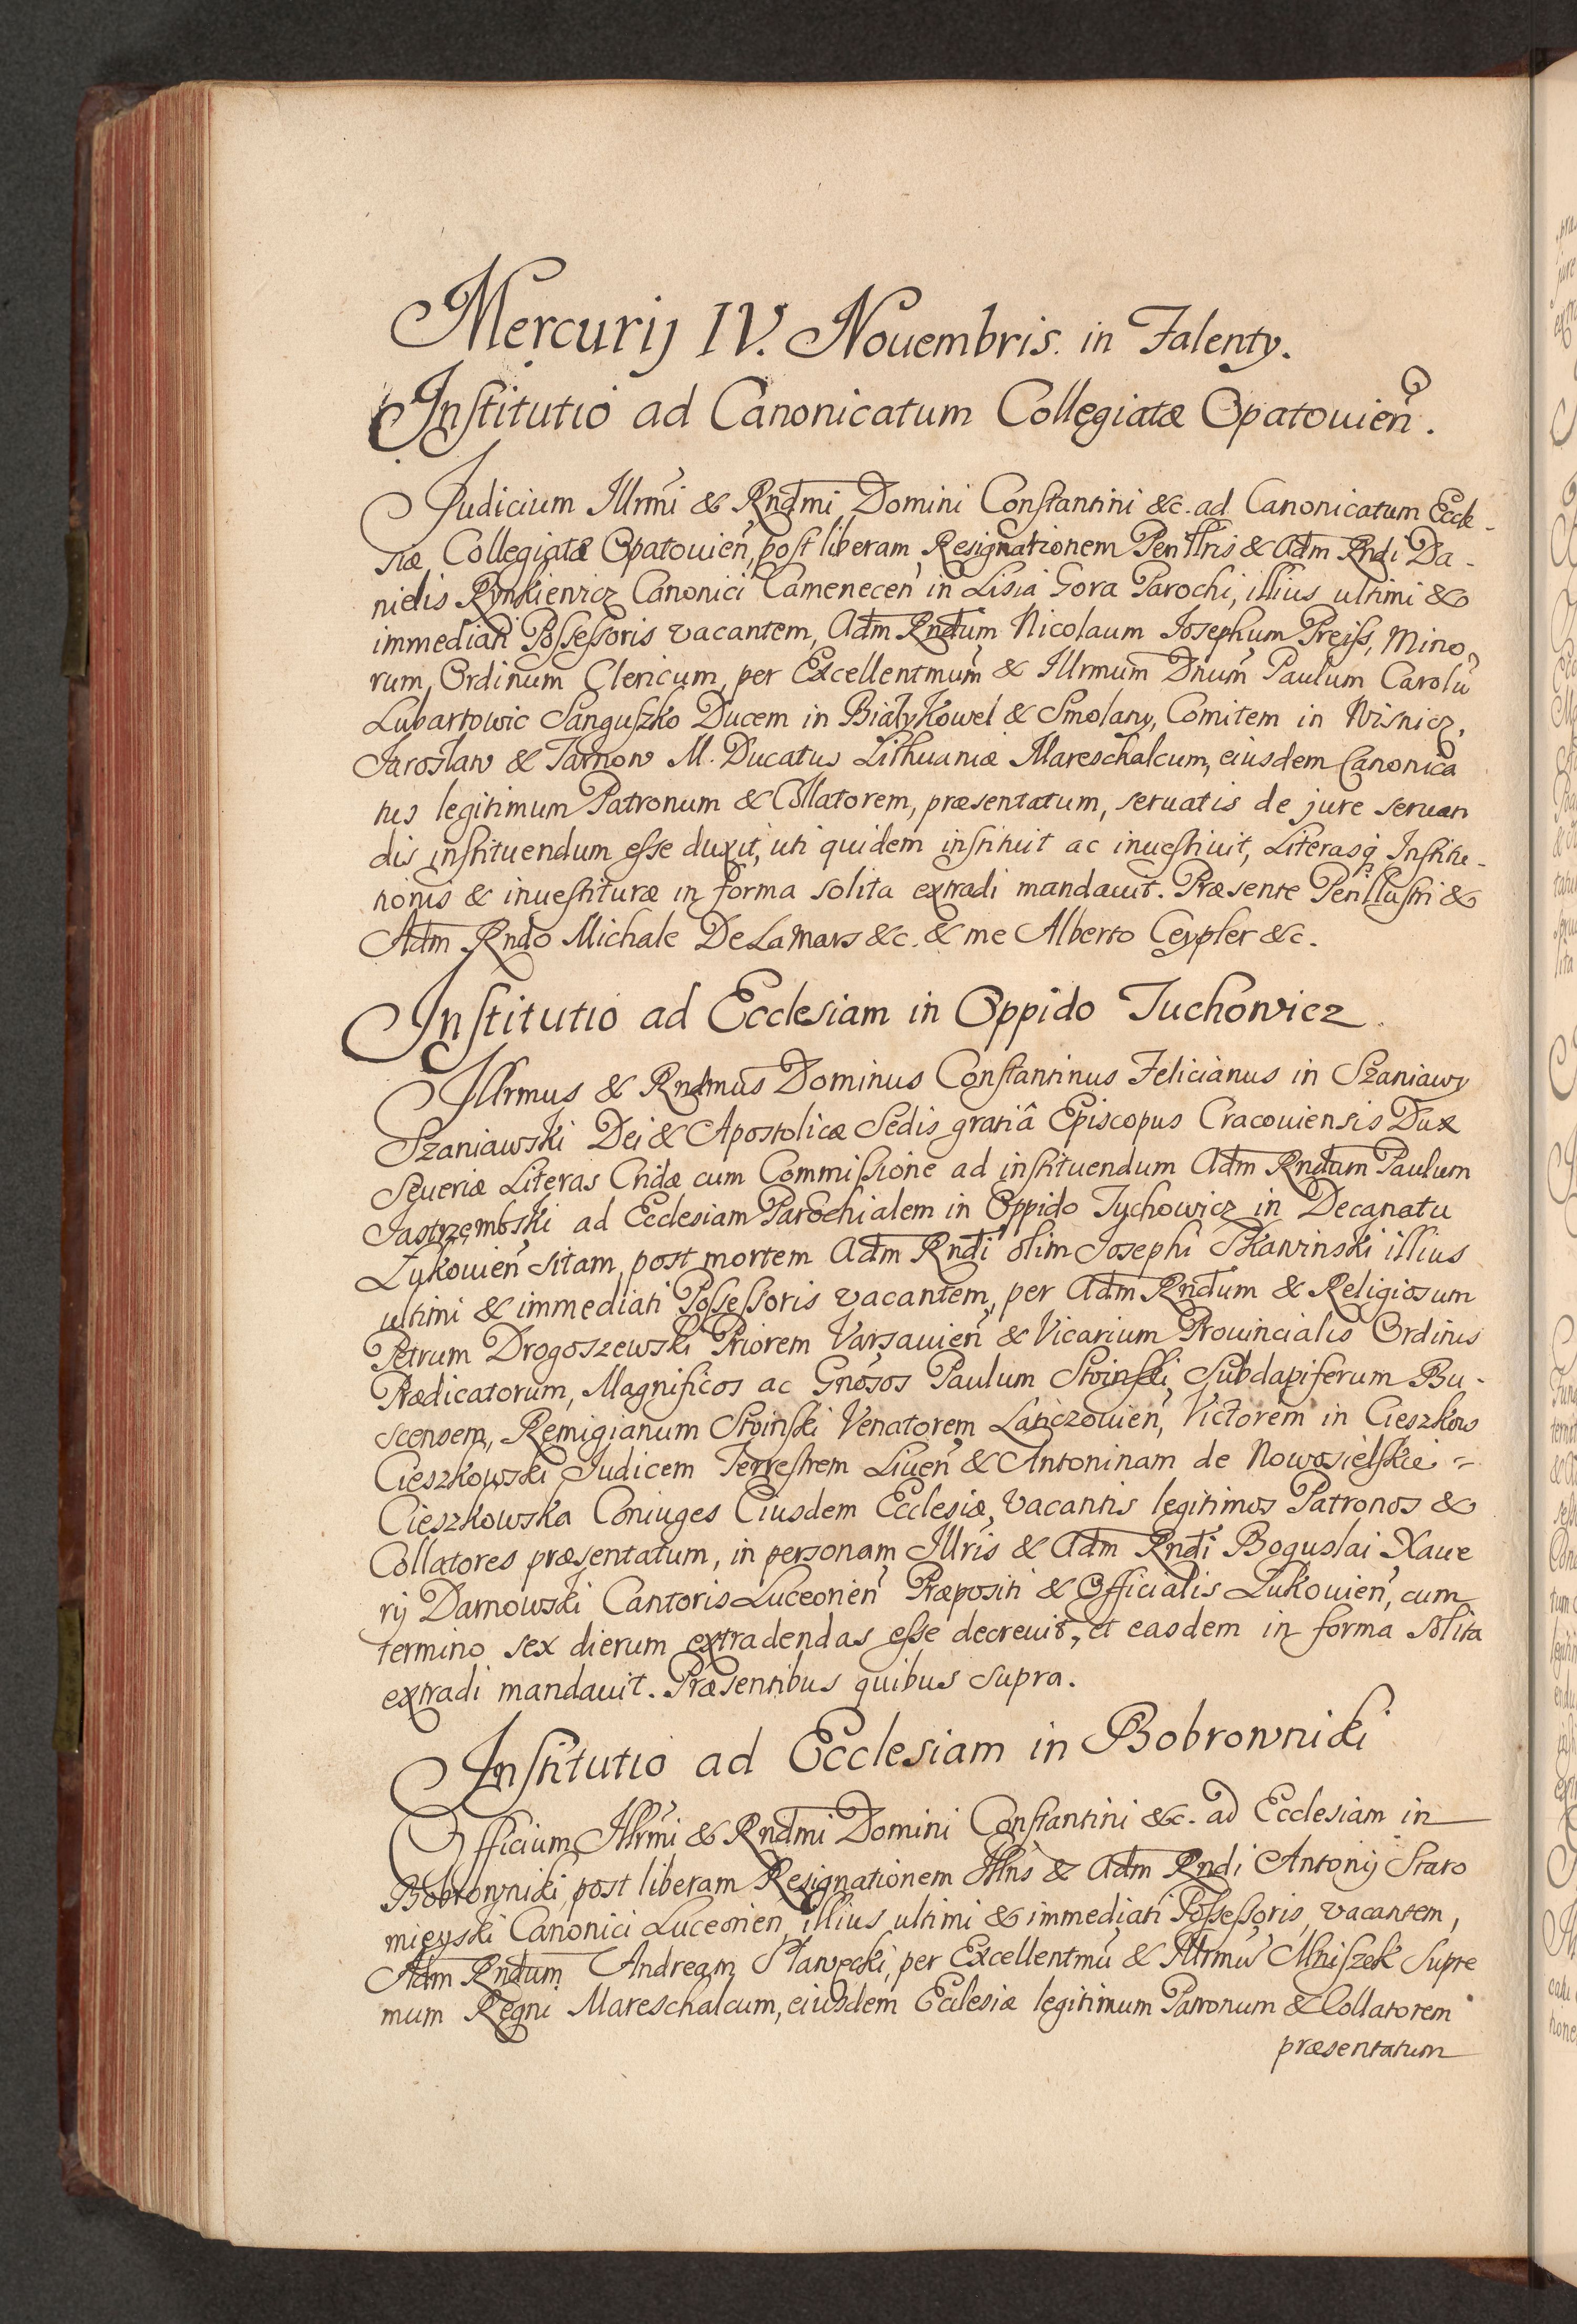 Mercurij IV. Nouembris. in Falenty.
Institutio ad Canonicatum Collegiatæ Opatouien̄.
Judicium Illrm̃i & Rndmi Domini Constantini &c. ad Canonicatum Eccle-
siæ Collegiatæ Opatouien̄, post liberam Resignationem Perillris & Adm Rndi Da-
nielis Rynkiewicz Canonici Camenecen̄ in Lisia Gora Parochi, illius ultimi &
immediati Possessoris vacantem, Adm Rndum Nicolaum Josephum Preiss, Mino-
rum Ordinum Clericum, per Excellentmum & Illrmum Dnum Paulum Carolū
Lubartowic Sanguszko Ducem in Biały Kowel & Smolany, Comitem in Wisnicz,
Jaroslaw & Tarnow M. Ducatus Lithuaniæ Mareschalcum, eiusdem Canonica
tus legitimum Patronum & Collatorem, præsentatum, seruatis de jure seruan
dis instituendum esse duxit, uti quidem instituit ac inuestiuit, Literasq̃ Institu-
tionis & inuestituræ in forma solita extradi mandauit. Præsente Perillustri &
Adm Rndo Michale De La Mars &c. & me Alberto Ceypler &c.
Institutio ad Ecclesiam in Oppido Tuchowicz
Illrmus & Rndmus Dominus Constantinus Felicianus in Szaniawy
Szaniawski Dei & Apostolicæ Sedis gratiâ Episcopus Cracouiensis Dux
Seueriæ Literas Cridæ cum Commissione ad instituendum Adm Rndum Paulum
Jastrzembski ad Ecclesiam Parochialem in Oppido Tychowicz in Decanatu
Lykouien̄ sitam, post mortem Adm Rndi olim Josephi Skawinski illius
ultimi & immediati Possessoris vacantem, per Adm Rndum & Religiosum
Petrum Drogoszewski Priorem Varsauien̄ & Vicarium Prouincialis Ordinis
Prædicatorum, Magnificos ac Gnosos Paulum Stoinski, Subdapiferum Bu-
scensem, Remigianum Stoinski Venatorem Lanczouien̄, Victorem in Cieszkow
Cieszkowski Judicem Terrestrem Liuen̄ & Antoninam de Nowosielskie =
Cieszkowska Coniuges Eiusdem Ecclesiæ, vacantis legitimos Patronos &
Collatores præsentatum, in personam Illris & Adm Rndi Boguslai Xaue
rij Darnowski Cantoris Luceorien̄ Præpositi & Officialis Lukouien̄, cum
termino sex dierum extradendas esse decreuit, et easdem in forma solita
extradi mandauit. Præsentibus quibus supra.
Institutio ad Ecclesiam in Bobrowniki
Officium Illrmi & Rndmi Domini Constantini &c. ad Ecclesiam in
Bobrowniki, post liberam Resignationem Illris & Adm Rndi Antonij Staro
mieyski Canonici Luceorien, illius ultimi & immediati Possessoris, vacantem,
Adm Rndum Andream Sławecki, per Excellentmū & Illrmū Mniszek Supre
mum Regni Mareschalcum, eiusdem Ecclesiæ legitimum Patronum & Collatorem
præsentatum